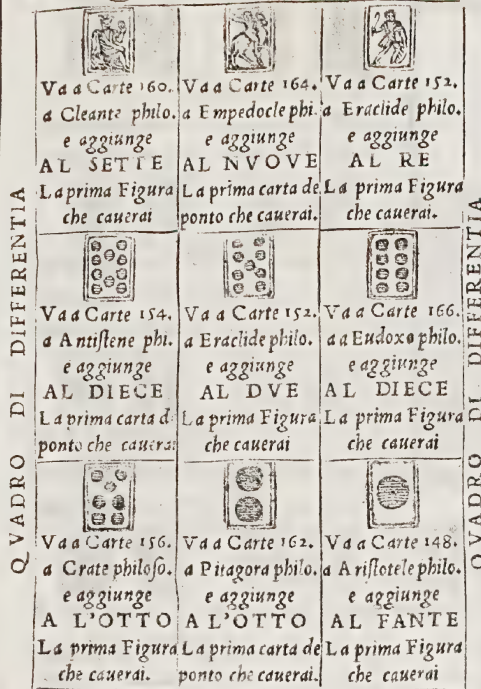 QVADRO DI DIFFERENTIA
Va a Carte 160.
a Cleante philo.
e aggiunge
AL SETTE
La prima Figura
che cauerai
Va a Carte 164.
a Empedocle phi.
e aggiunge
AL NVOVE
La prima carta de
ponto che cauerai.
Va a Carte 152.
a Eraclide philo.
e aggiunge
AL RE
La prima Figura
che cauerai.
Va a Carte 154.
a Antiſtene phi.
e aggiunge
AL DIECE
La prima carta d
ponto che cauerai
Va a Carte 152.
a Eraclide philo.
e aggiunge
AL DVE
La prima Figura
che cauerai
Va a Carte 166.
a a Eudoxo philo.
e aggiunge
AL DIECE
La prima Figura
che cauerai
Va a Carte 156.
a Crate philoſo.
e aggiunge
A L'OTTO
La prima Figura
che cauerai.
Va a Carte 162.
a Pitagora philo.
e aggiunge
A L'OTTO
La prima carta de
ponto che cauerai.
Va a Carte 148.
a Ariſtotele philo.
e aggiunge
AL FANTE
La prima Figura
che cauerai
QVADRO DI DIFFERENTIA